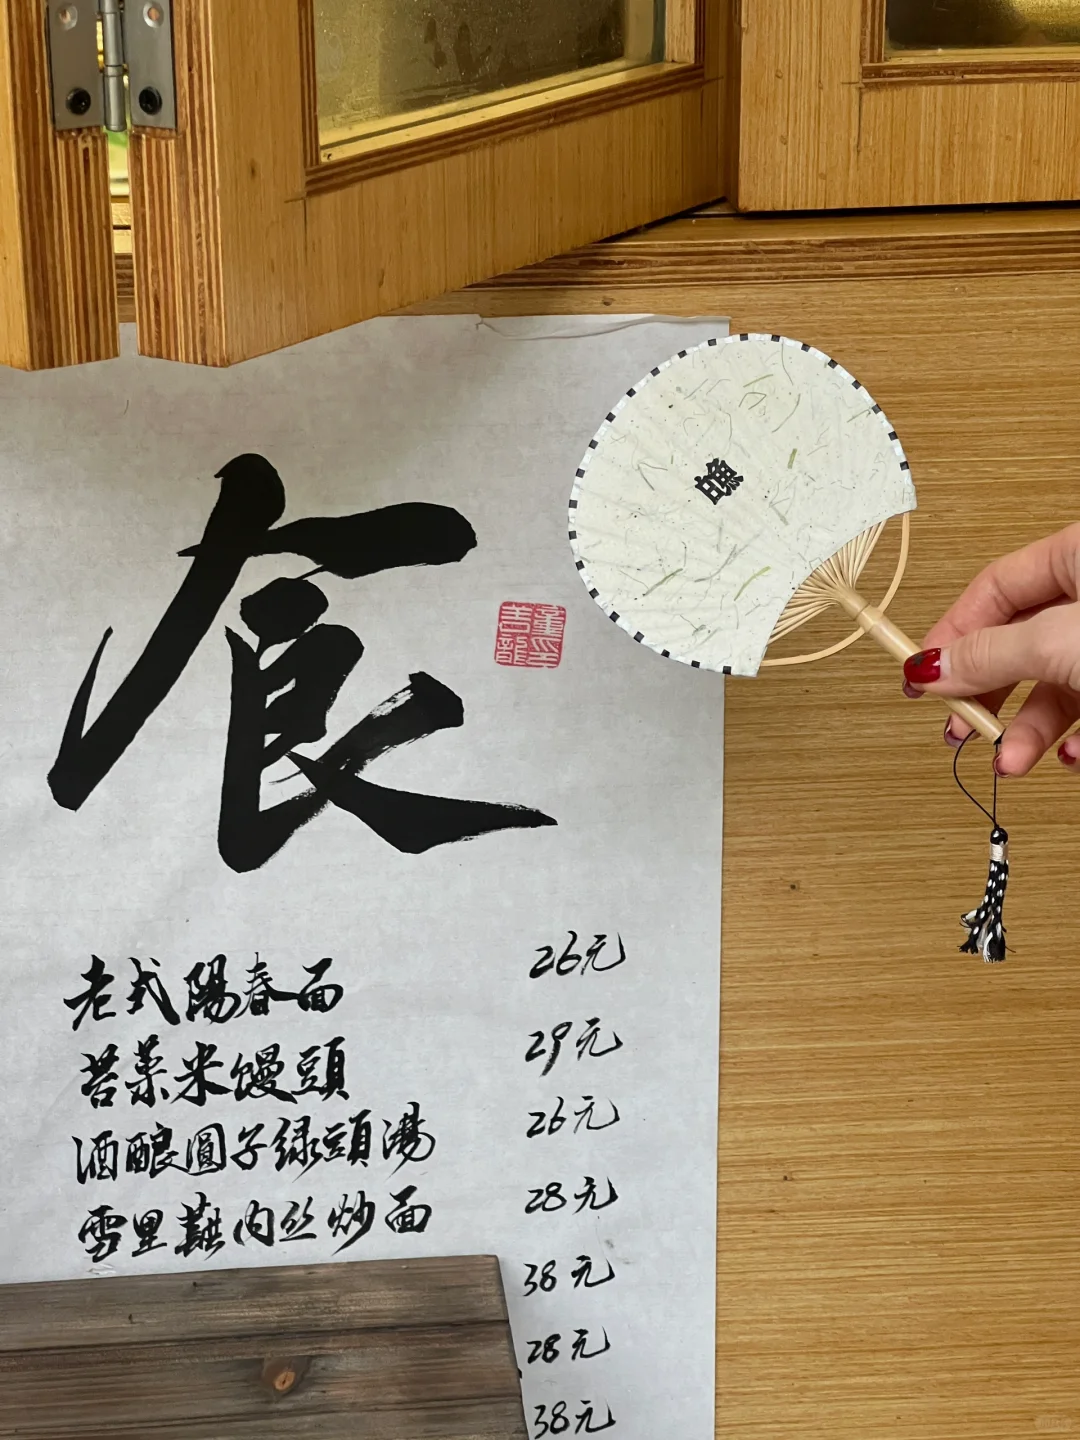 食
老式陽春面 26元
苦菜米馒頭 29元
酒酿圓子绿頭湯 26元
雪里蕻肉丝炒面 28元
38元
28元
38元